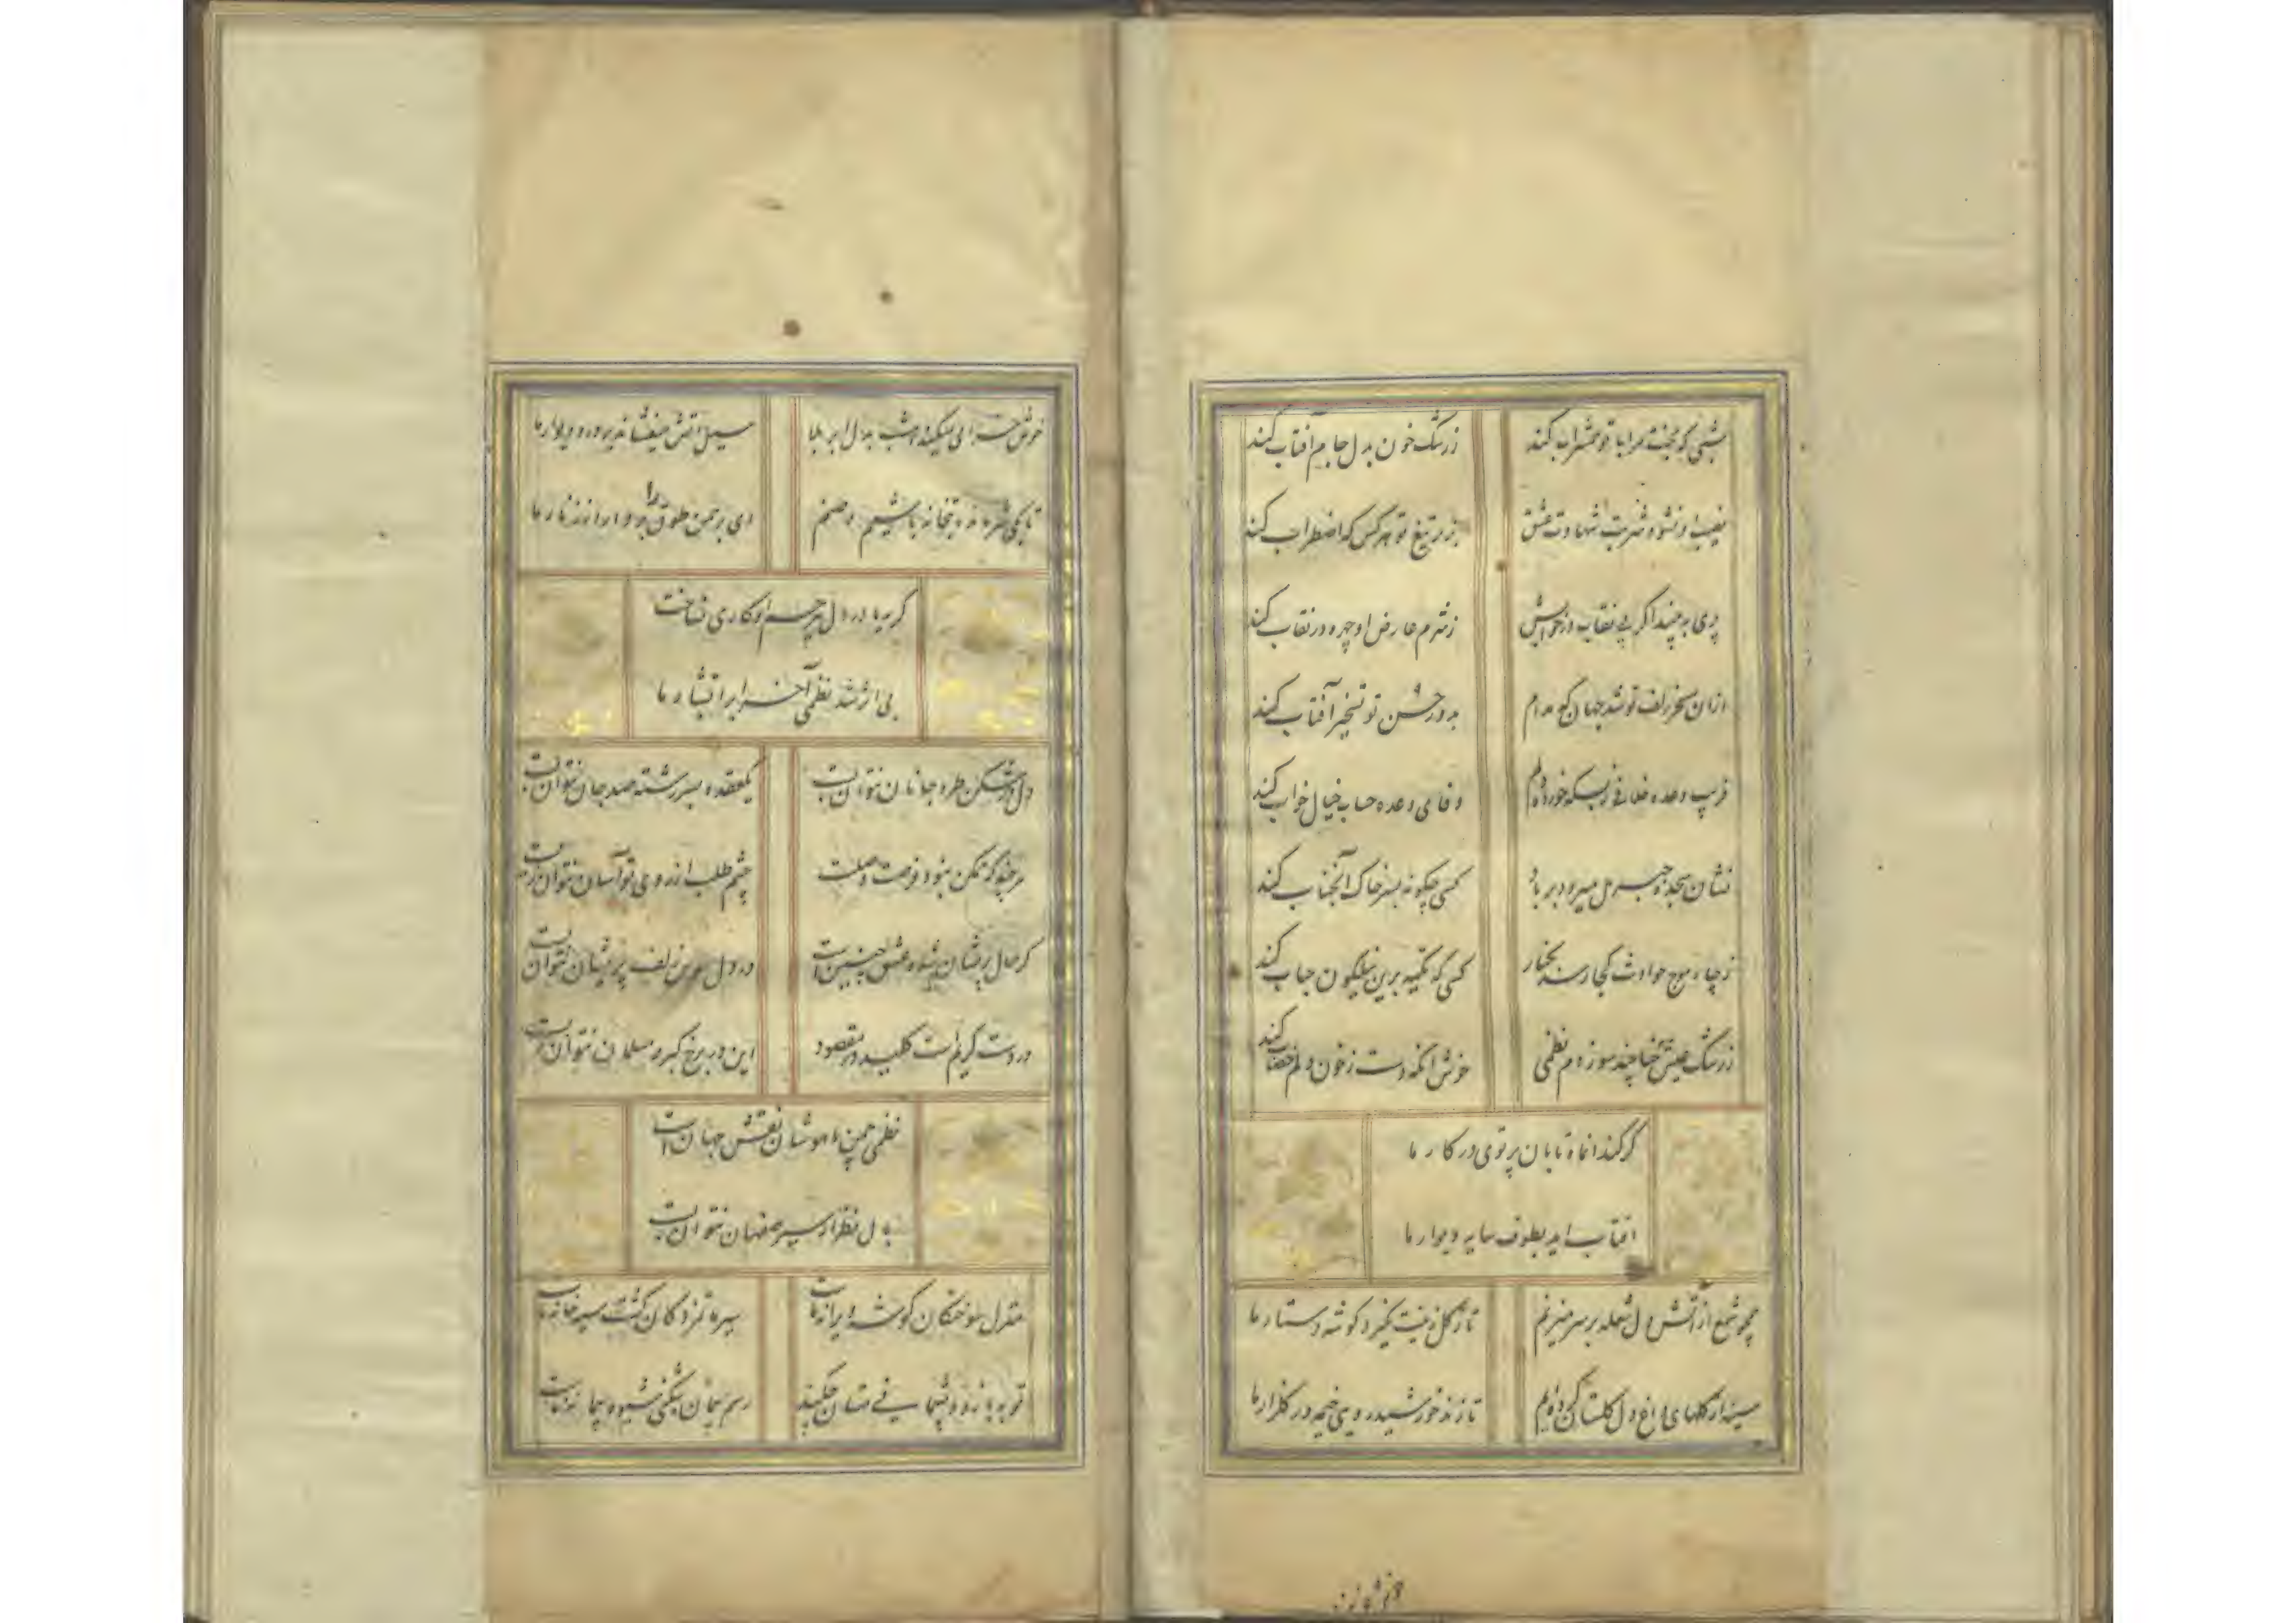 شبی که بخت مرا با تو همشراب کند
ز رشک خون بدل جام آفتاب کند
نصیب او نشود شربت شهادت عشق
بزیر تیغ تو هر کس که اضطراب کند
پری به بیند اگر بی نقاب در خوابش
ز شرم عارض او چهره در نقاب کند
ازان مسخر زلف تو شد جهان که مدام
به دور حسن تو تسخیر آفتاب کند
فریب وعده خلافی ز بسکه خورده دلم
وفای وعده حساب خیال خواب کند
نشان سجده جبریل میرود بر باد
کسی چگونه بسر خاک آنجناب کند
ز چار موج حوادث کجا رسد بکنار
کسی که تکیه برین نیلگون حباب کند
ز رشک عیش حنا چند سوزدم نظمی
خوش آنکه دست ز خون دلم خضاب کند
گر کند آنماه تابان پرتوی در کار ما
آفتاب آید بطوف سایه دیوار ما
همچو شمع از آتش دل شعله بر سر میزنم
تا ز گل زینت نگیرد گوشه دستار ما
سینه از گلهای داغ دل گلستان کرده ایم
تا زند خورشید رویی خیمه در گلزار ما
خوش
میکند امشب بدل ابر بلا
سیل آتش میفشاند بر در و دیوار ما
تا بکی شرمنده بتخانه باشیم و صنم
ای برهمن طوق را بردار از زنار ما
گریه ما در دل بیرحم او کاری نساخت
بی اثر شد نظمی آخر ابر آتشبار ما
دل در شکن طره جانان نتوان بست
یکعقده بسر رشته صد جان نتوان بست
هر چند که ممکن نبود فرصت وصلت
چشم طلب از روی تو آسان نتوان بست
گر حال پریشان شده عشق چنین است
در دل عوض زلف پریشان نتوان بست
در دست کریم است کلید در مقصود
این در برخ گبر و مسلمان نتوان بست
نظمی چمن ماهوشان نقش جهان است
دل نظر از سیر صفاهان نتوان بست
منزل سوختگان گوشه ویرانه ماست
سیه خانه ماست
توبه
مستان چکنند
رسم پیمان شکنی شیوه پیمانه ماست